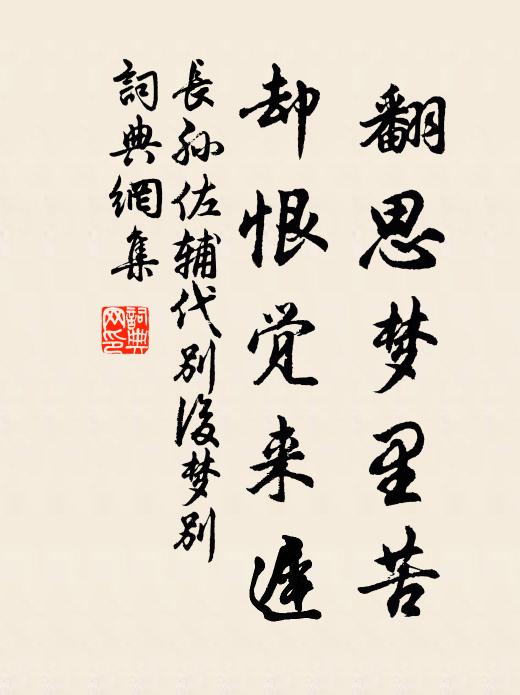 翻思梦里苦
却恨觉来遲
長孙佐輔代别後梦别
詞典網集
詞典网印